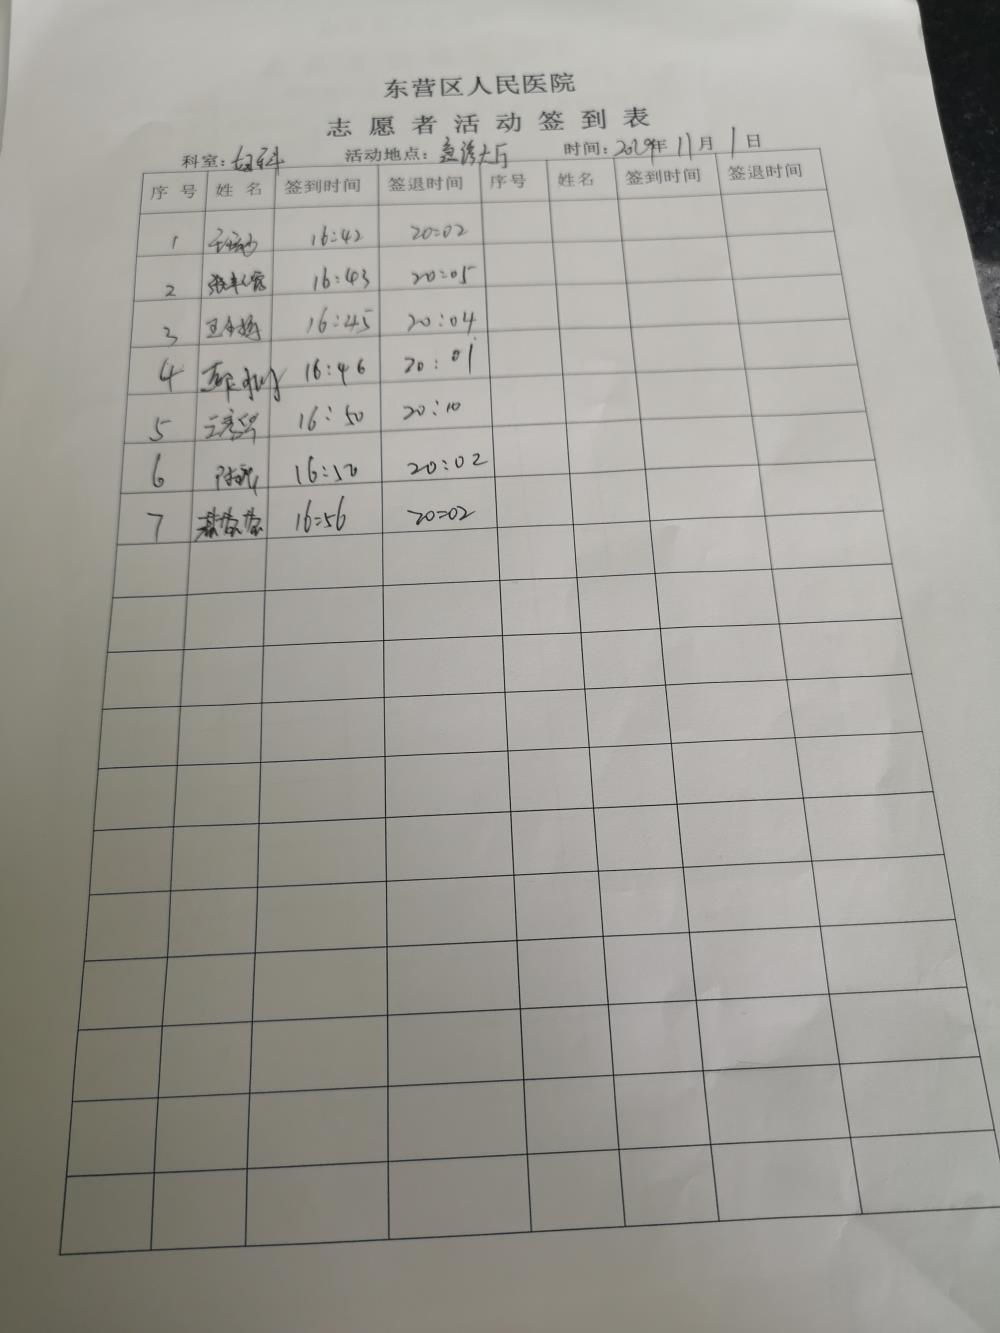 东营区人民医院
志愿者活动签到表
科室：妇科 活动地点：急诊大厅 时间：2019年11月1日
序号 姓名 签到时间 签退时间 序号 姓名 签到时间 签退时间
1 16:42 20:02
2 16:43 20:05
3 16:45 20:04
4 16:46 20:01
5 16:50 20:10
6 16:50 20:02
7 16:56 20:02